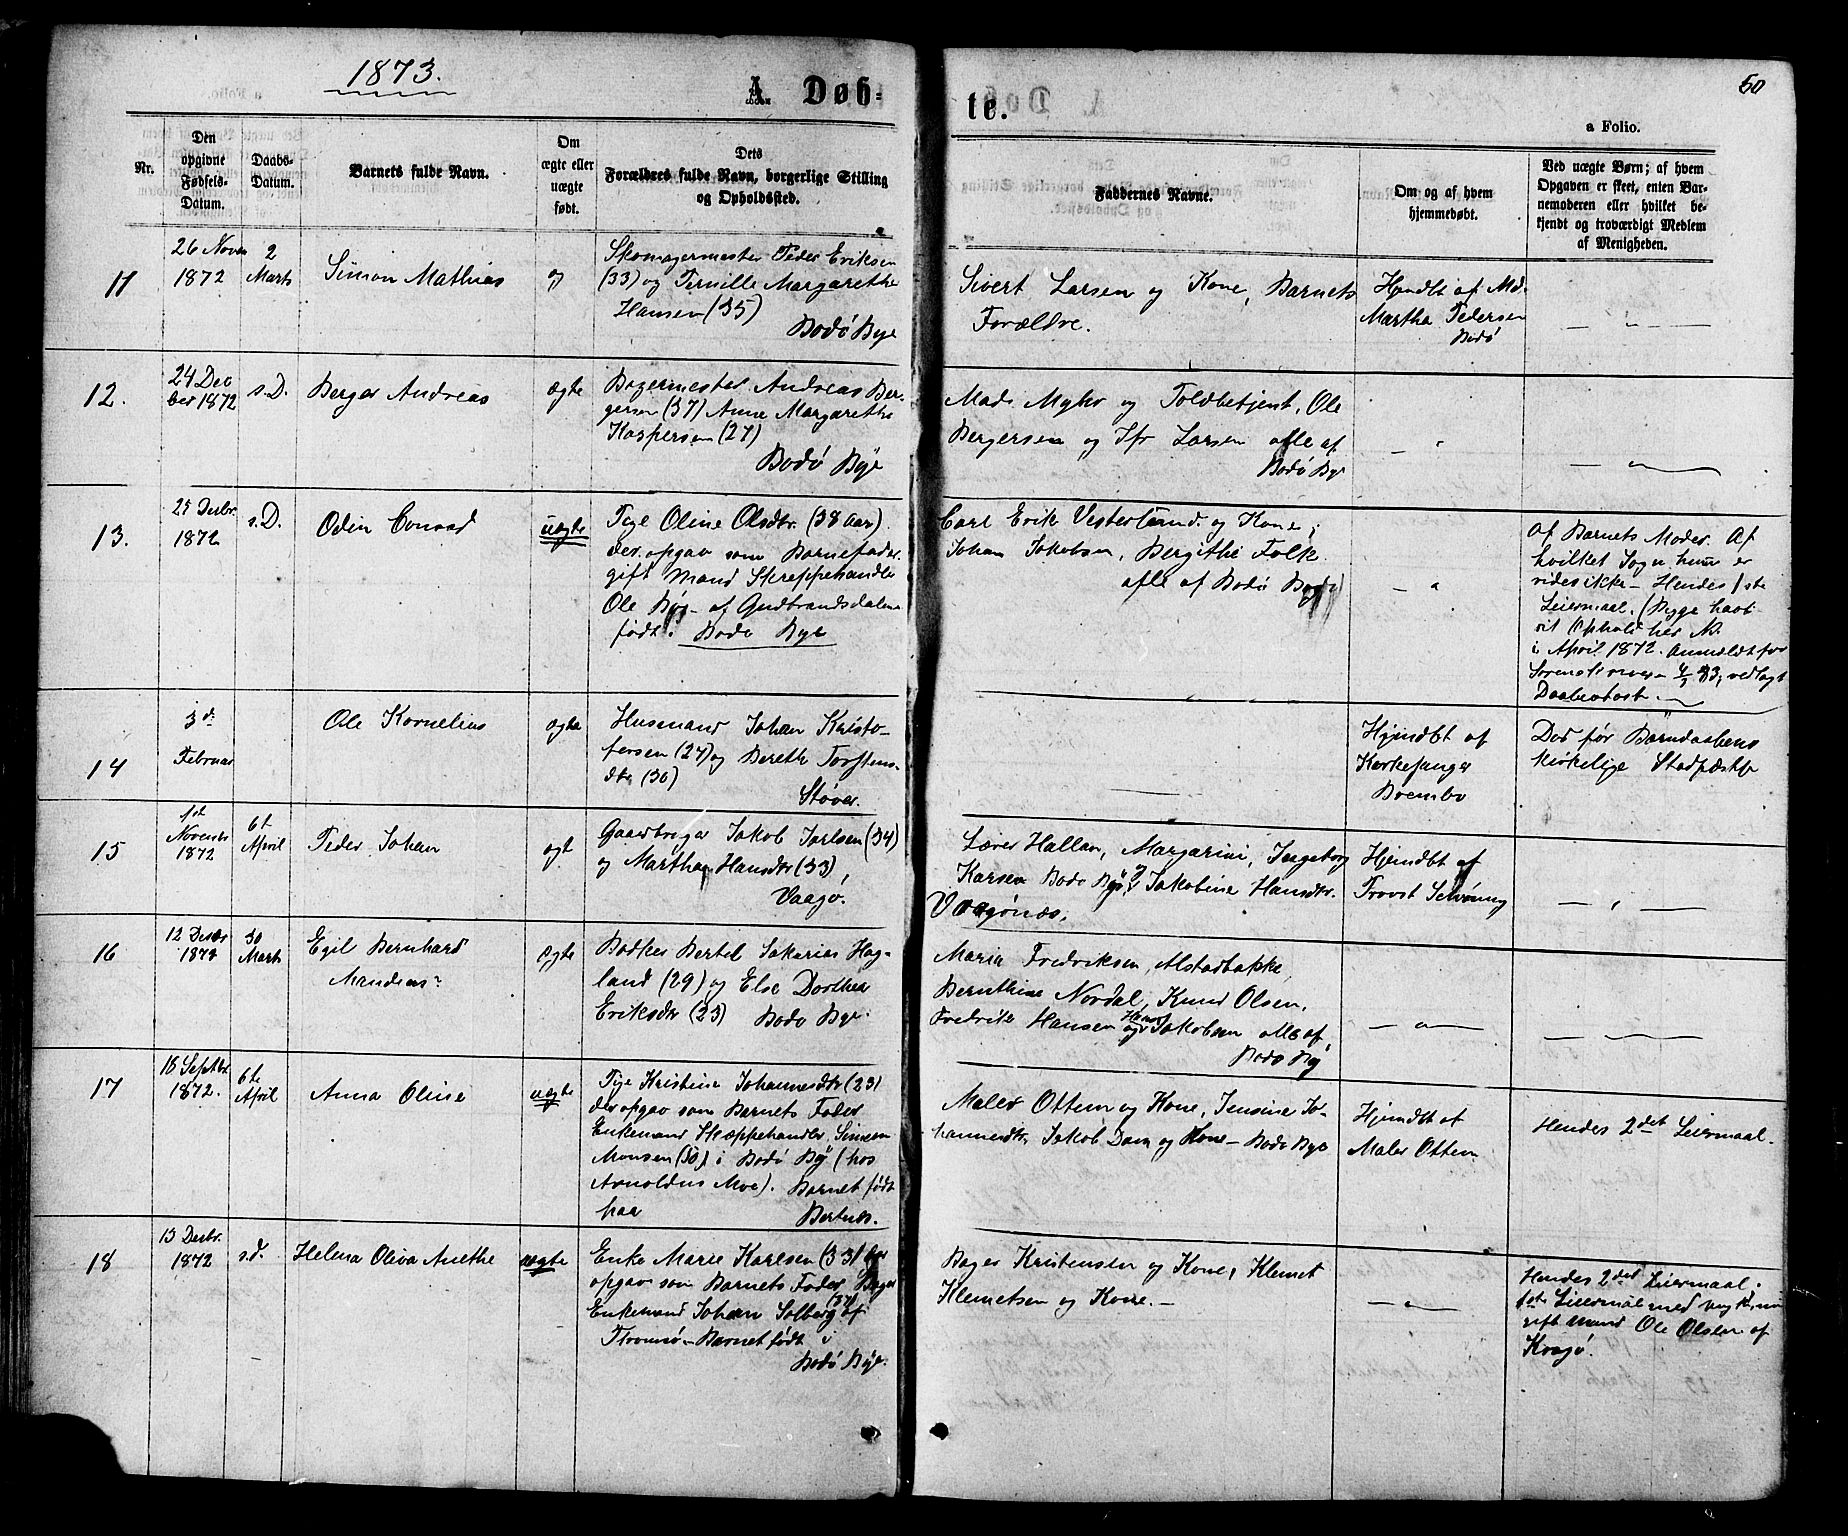 1873.
A. Døb-
te.
50
a Folio.
Nr.
Den
opgivne
Fødsels-
Datum.
Daabs-
Datum.
Barnets fulde Navn.
Om
ægte eller
uægte
født.
Dets
Forældres fulde Navn, borgerlige Stilling
og Opholdssted.
Faddernes Navne.
Om og af hvem
hjemmedøbt.
Ved uægte Børn; af hvem
Opgaven er skeet, enten Bar-
nemoderen eller hvilket be-
kjendt og troværdigt Medlem
af Menigheden.
11
26 Novem
1872
2
Marts
Simon Mathias
Skomagermester Peder Eriksen
(33) og Pernille Margarethe
Hansen (35)
Bodø Bye
Sivert Larsen og Kone, Barnets
Forældre.
Hjmdbt af Md.
Martha Pedersen
Bodø
12.
24 Dec
ber 1872
s.D.
Berger Andreas
ægte
Bagermester Andreas Ber-
gersen (37) Anne Margarethe
Kaspersen (27)
Bodø Bye
Mads Myhr og Toldbetjent Ole
Bergersen og Jfr Larsen alle af
Bodø Bye
13.
25 Decbr.
1872
s.D.
Odin Conrad
uægte
Pige Oline Olsdtr. (38 Aar).
der opgav som Barnefader
gift Mand Skreppehandler
Ole Byg- af Gudbrandsdalen
født i Bodø Bye
Carl Erik Vesterlund og Kone,
Johan Jakobsen, Bergithe Falk
alle af Bodø Bye
Af Barnets Moder. Af
hvilket Sogn hun er
vides ikke - Hendes 1ste
Leiermaal. (Bygge havt
sit Ophold her
i April 1872. Anmeldt for
73, vedlagt
Daabsattest.
14
3d
Februar
Ole Kornelius
ægte
Husmand Johan Kristo-
fersen (27) og Berethe Torstens-
dtr (30)
Støver.
Hjmdbt af
Kirkesanger
Brembo
Død før Barndaabens
kirkelige Stadfæstelse
15
1st
Novembr
1872
6te
April
Peder Johan
ægte
Gaardbruger Jakob Jarlsen (34)
og Martha Hansdtr (33),
Vaagø.
Lærer Hallan, Margarine, Ingeborg
Karsen Bodø Bye, og Jakobine Hansdtr.
Vaagønæs.
Hjmdbt af
Provst Schøning
16
12 Decbr
1872
30
Marts
Egil Bernhard
Mandius?
ægte
Bødker Bertel Sakarias Hag-
land (29) og Else Dorthea
Eriksdtr (23) Bodø Bye.
Maria Fredriksen, Alstadbakke,
Bernthine Nordal, Knud Olsen,
Fredrik Hansen og Hans Jakobsen alle af
Bodø By
17
18 Septbr
1872.
6te
April
Anna Oline
uægte
Pige Kristine Johannesdtr (23)
der opgav som Barnets Fader
Enkemand Skreppehandler, Simon
Monsen (30) i Bodø By (hos
Arnoldus Moe). Barnet født
paa
Bertnes.
Maler Ottem og Kone, Jensine Jo-
hannesdtr, Jakob Dam og Kone - Bodø Bye
Hjmdbt af
Maler Ottem
Hendes 2det Leiermaal.
18
13 Decbr.
1872
s.d.
Helena Oliva Anethe
uægte
Enke Marie Karlsen (33) der
opgav som Barnets Fader Bager
Enkemand Johan Solberg (37) af
Tromsø - Barnet født i
Bodø Bye.
Bager Kristensen og Kone, Klemet
Klemetsen og Kone. -
Hendes 2det Leiermaal.
1ste Leiermaal med
gift Mand Ole Olsen af